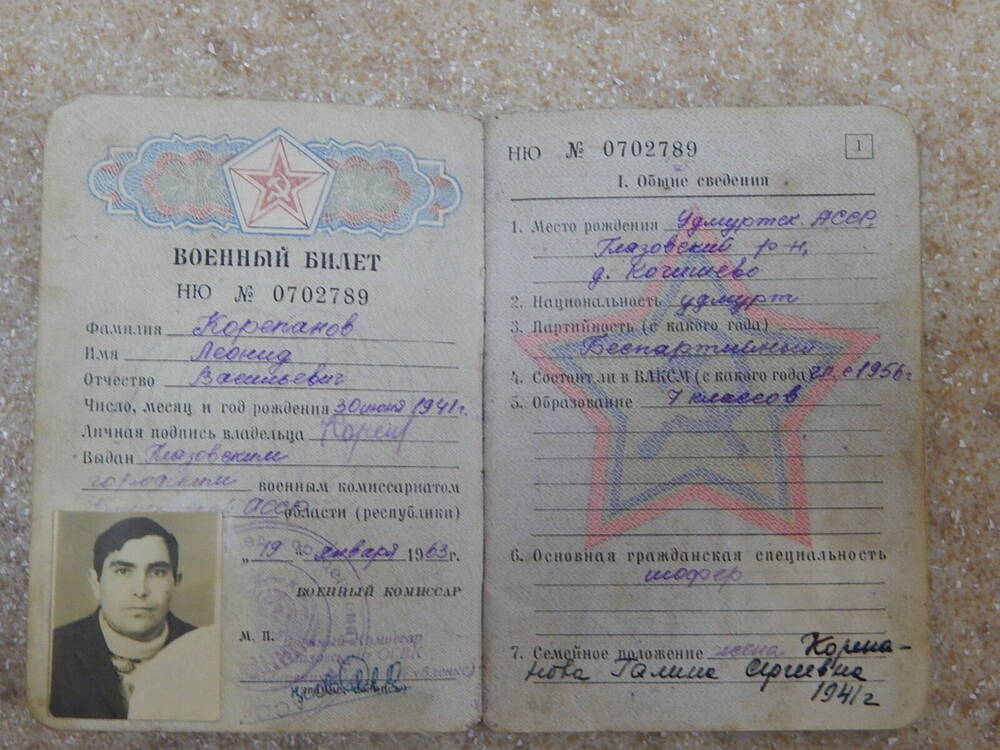 ВОЕННЫЙ БИЛЕТ
НЮ № 0702789
Фамилия Корепанов
Имя Леонид
Отчество Васильевич
Число, месяц и год рождения 30 июня 1941г.
Личная подпись владельца
Выдан Глазовским
городским военным комиссариатом
АССР области (республики)
„19" января 1963г.
ВОЕННЫЙ КОМИССАР
М. П.
Военный комиссар
НЮ № 0702789
1
I. Общие сведения
1. Место рождения Удмуртск. АССР,
Глазовский р-н,
д. Кочишево
2. Национальность удмурт
3. Партийность (с какого года)
Беспартийный
4. Состоит ли в ВЛКСМ (с какого года) с 1956г
5. Образование 7 классов
6. Основная гражданская специальность
шофер
7. Семейное положение жена Корепа-
нова Галина Сергеевна
1941г